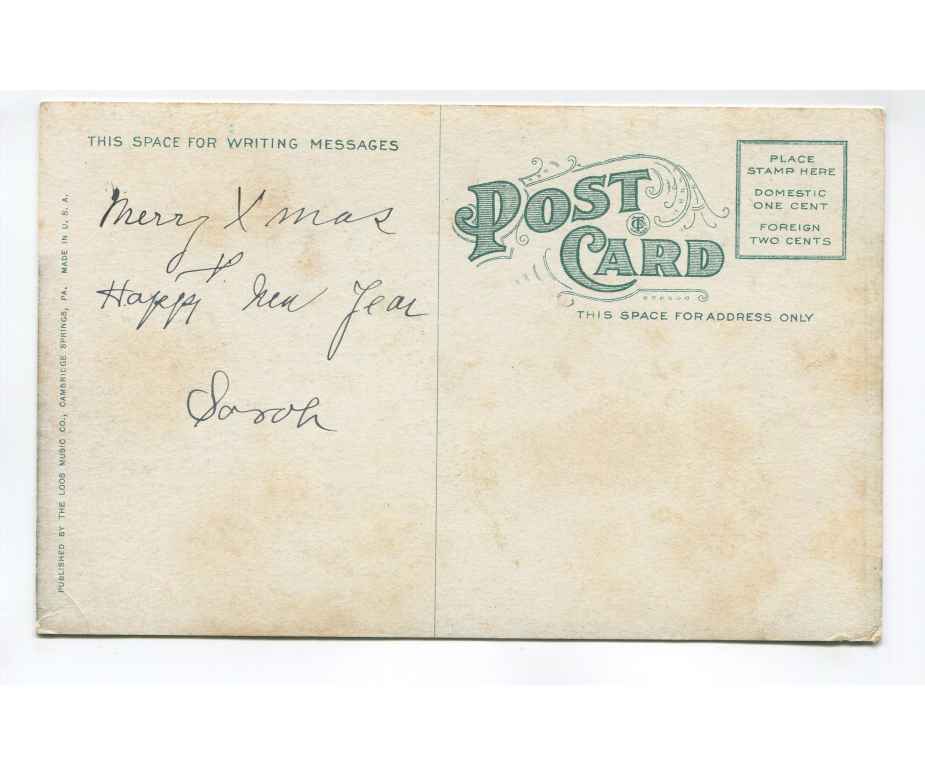 THIS SPACE FOR WRITING MESSAGES
Merry Xmas
&
Happy New Year
Sarah
PUBLISHED BY THE LOOS MUSIC CO., CAMBRIDGE SPRINGS, PA. MADE IN U. S. A.
POST
CARD
THIS SPACE FOR ADDRESS ONLY
PLACE
STAMP HERE
DOMESTIC
ONE CENT
FOREIGN
TWO CENTS